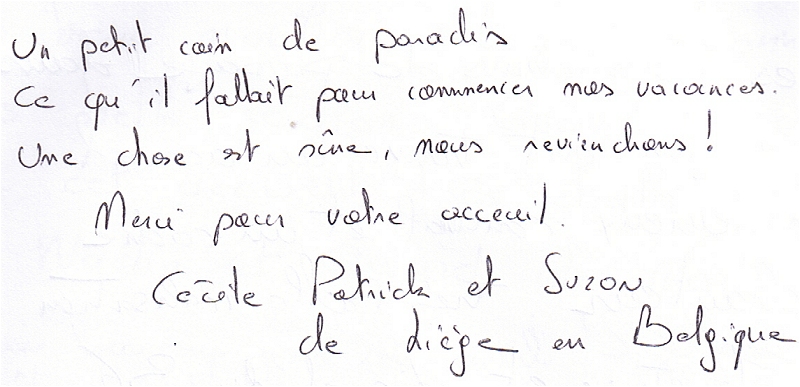 Un petit coin de paradis
Ce qu'il fallait pour commencer nos vacances.
Une chose est sûre, nous reviendrons !
Merci pour votre acceuil.
Cécile Patrick et Suzon
de Liège en Belgique